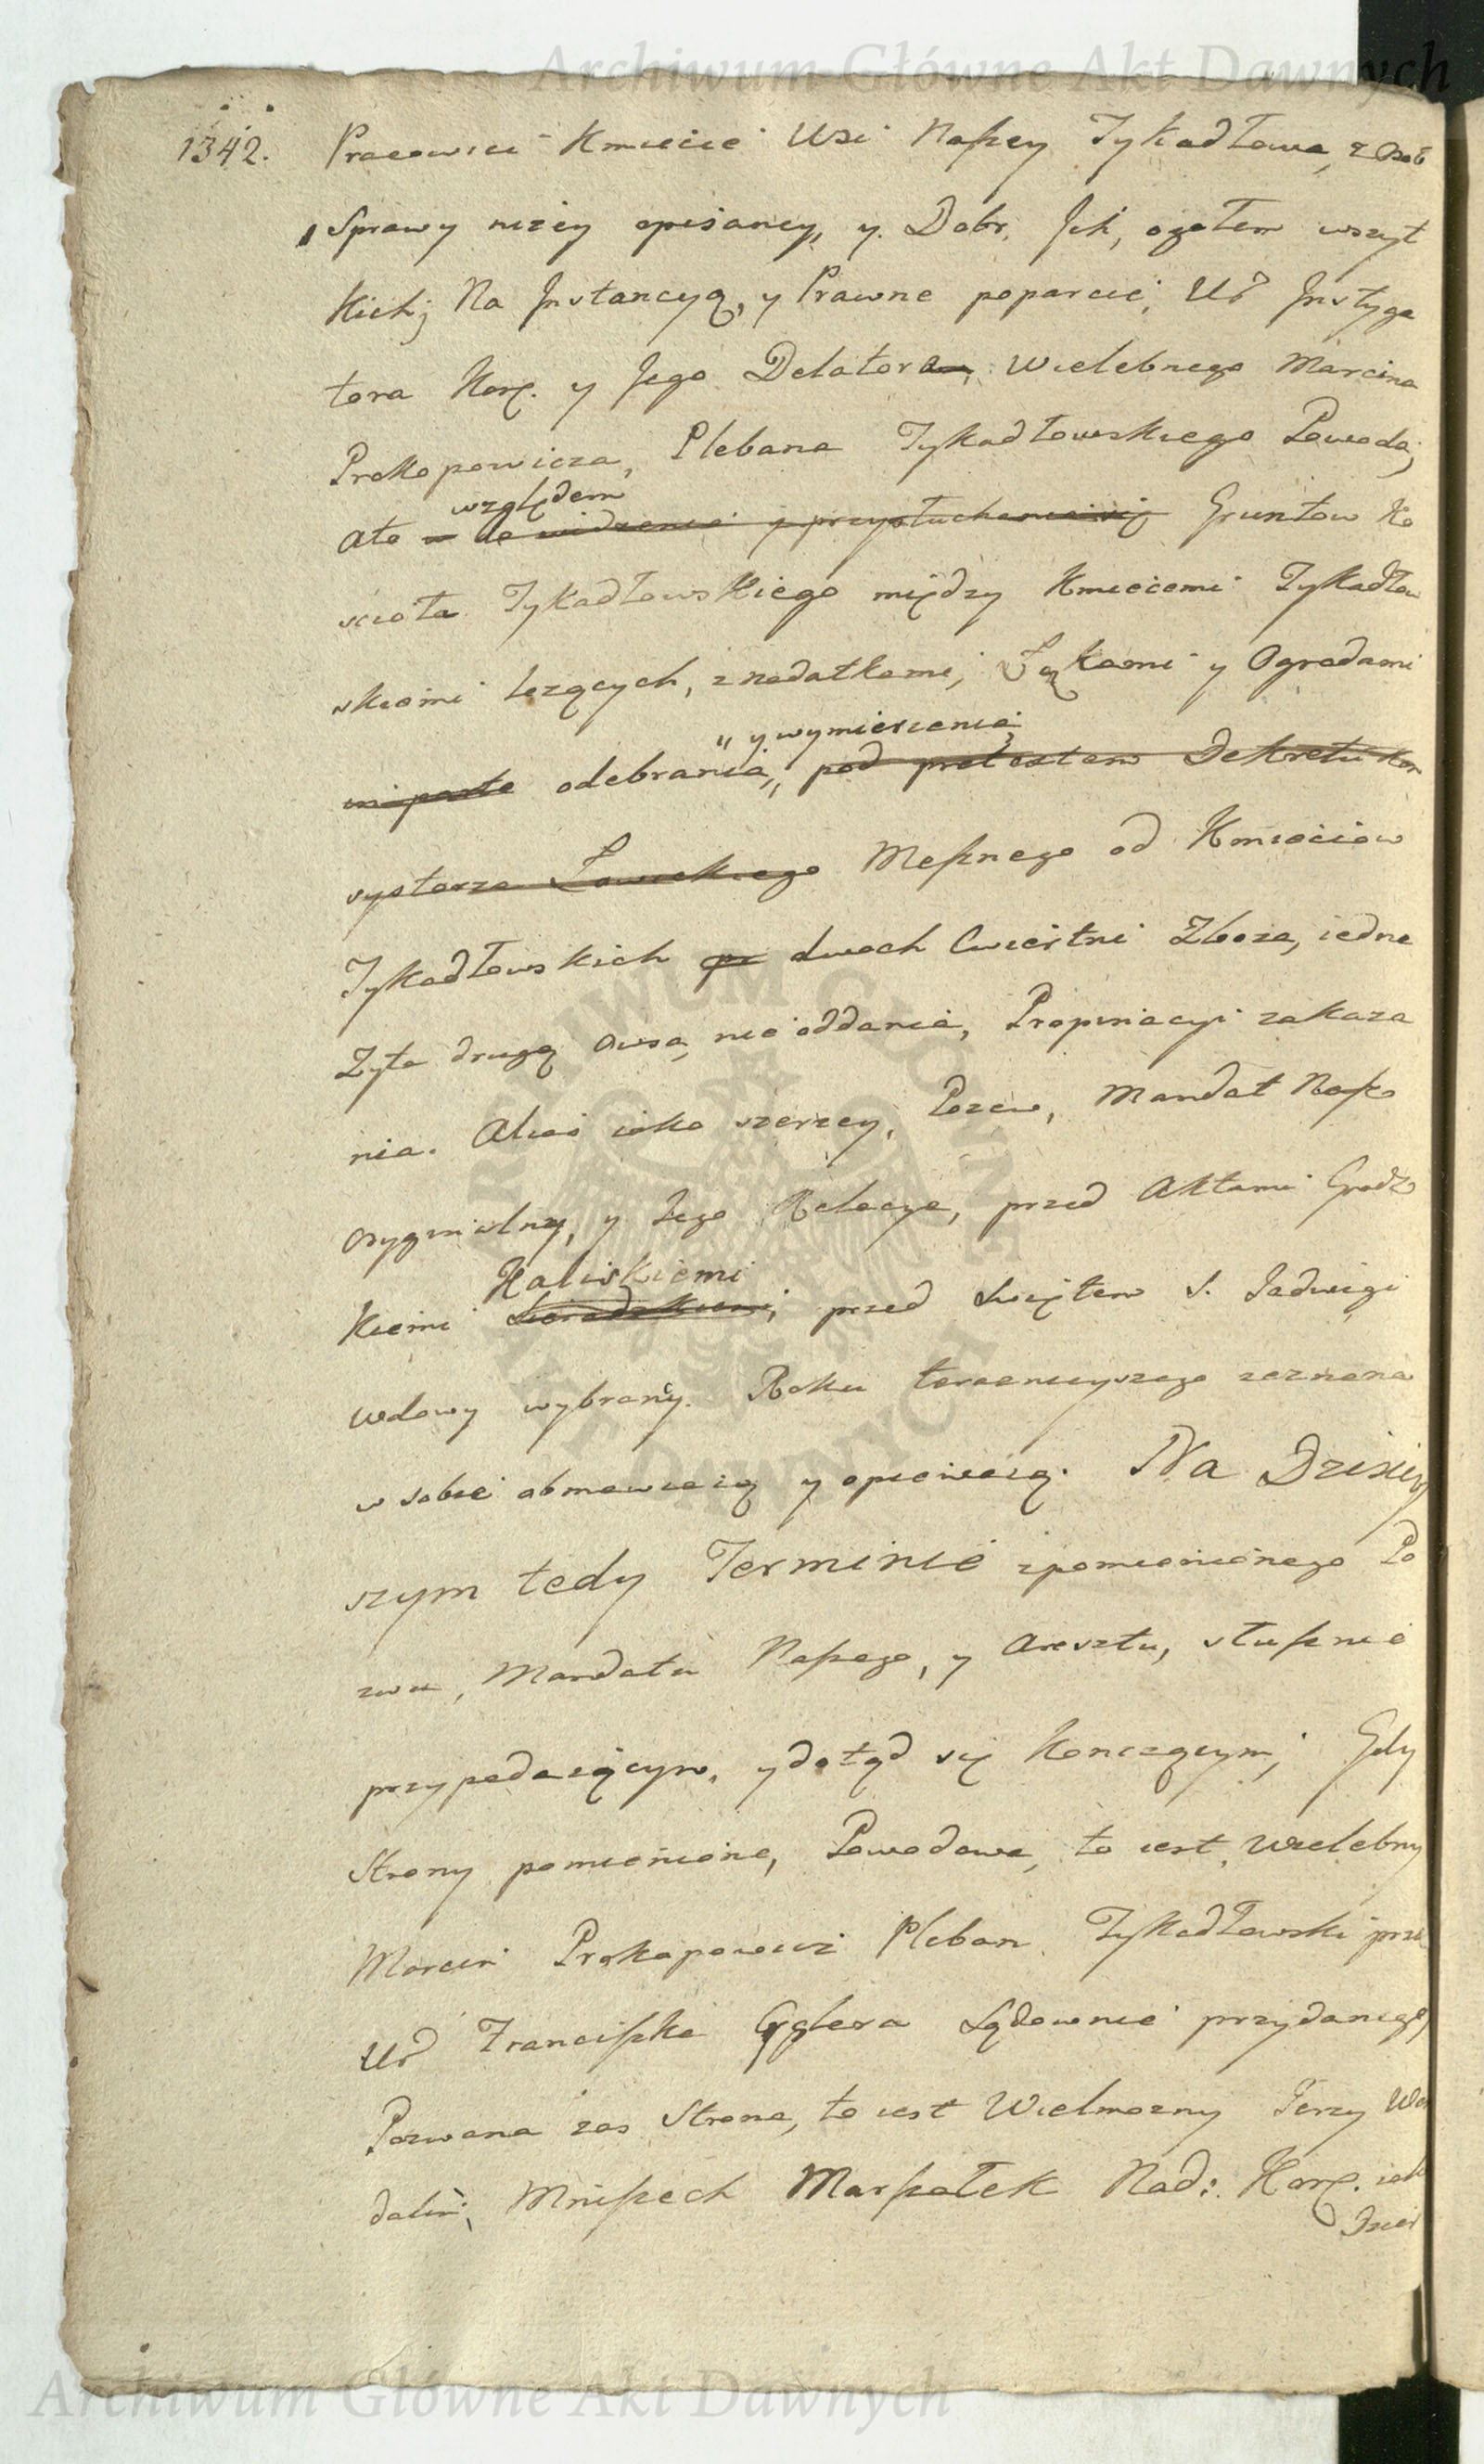 Archiwum Główne Akt Dawnych
1342. Pracowici Kmiecie Wsi Naszey Tykadłowa, z Osob
Sprawy niżey opisaney, y. Dobr. Ich, ogołem wszyt
kich; Na Instancyą, y Prawne poparcie; Ur Instyga
tora Kor. y Jego Delatora, Wielebnego Marcina
Prokopowicza, Plebana Tykadłowskiego Powoda;
względem
Ato do widzenia y przysłuchania się Gruntow Ko
scioła Tykadłowskiego między Kmieciemi Tykadłow
skiemi lezących, z nadatkami, Łąkami y Ogrodami
y wymierzenia
in parte odebrania, pod pretextem Dekretu Kom
Meſznego od Kmieciow
Tykadłowskich dwoch Cwiertni Zboza, iedne
Zyta drugą Owsa, nie oddania, Propinacyi zakaza
nia. Alias iako szerzey, Pozew, Mandat Naſz
oryginalny, y Jego Relacya, przed Aktami Grodz
Kaliskiemi
kiemi Sieradzkiemi, przed Swiętem S. Jadwigi
Wdowy wybraney. Roku teraznieyszego zeznana
w sobie obmawiaią y opiewaią. Na Dzisiey
szym tedy Terminie z pomienionego Po
zwu, Mandatu Naſzego, y Aresztu, słuſznie
przypadaiącym, y dotąd się konczącym; Gdy
Strony pomienione, Powodowa, to iest, Wielebny
Marcin Prokopowicz Pleban Tykadłowski prze
Ur Franciſzka Gzlera Sądownie przydanego,
Pozwana zas Strona, to iest Wielmozny Jerzy Wan
dalin; Mniſzech Marſzałek Nad: Kor. iak
Dzier
Archiwum Główne Akt Dawnych